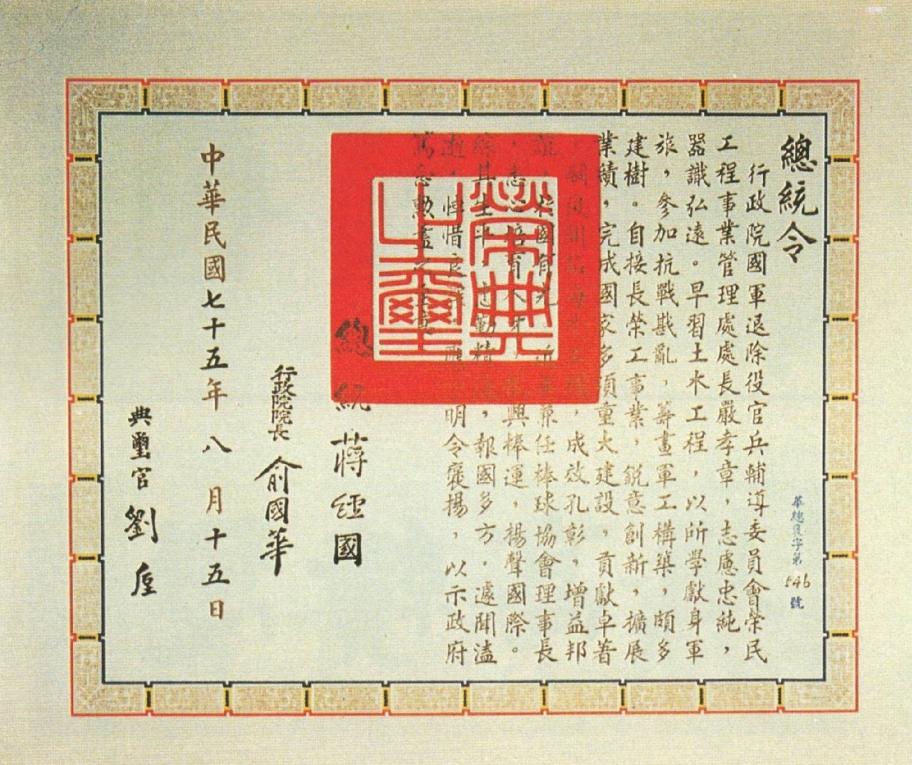 總統令
行政院國軍退除役官兵輔導委員會榮民
工程事業管理處處長嚴孝章,志慮忠純,
器識弘遠。早習土木工程,以所學獻身軍
旅,參加抗戰戡亂,籌畫軍工構築,頗多
建樹。自接長榮工事業,銳意創新,擴展
業績,完成國家多項重大建設,貢獻卓著
,成效孔彰,增益邦
誼,兼任棒球協會理事長
,興棒運,揚聲國際。
綜其生平,報國多方,遽聞溘
逝,悼惜良,明令褒揚,以示政府
篤念勳藎之
總統 蔣經國
行政院院長 俞國華
中華民國七十五年八月十五日
典璽官 劉垕
榮典之璽
華總字第546號